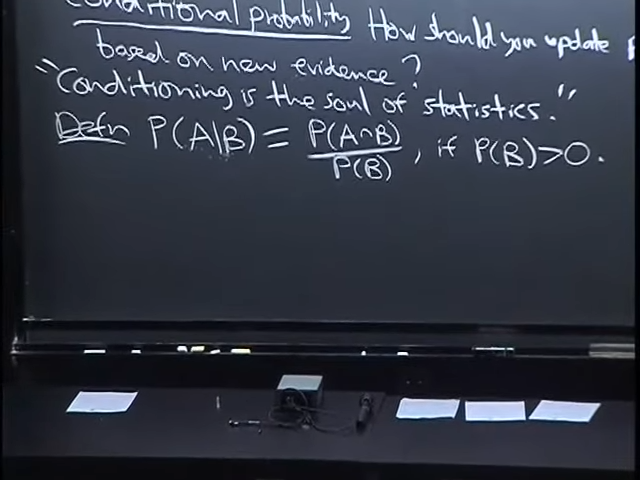 Conditional probability How should you update
based on new evidence?
"Conditioning is the soul of statistics."
Defn P(A|B) = P(A∩B)/P(B), if P(B)>0.